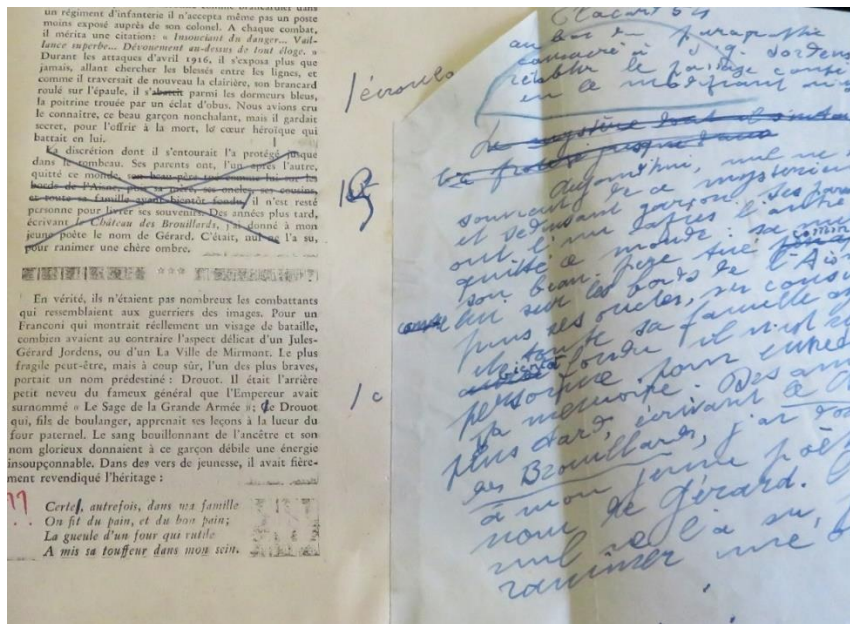 un régiment d'infanterie il n'accepta même pas un poste
moins exposé auprès de son colonel. A chaque combat,
il mérita une citation: « Insouciant du danger... Vail-
lance superbe... Dévouement au-dessus de tout éloge. »
Durant les attaques d'avril 1916, il s'exposa plus que
jamais, allant chercher les blessés entre les lignes, et
comme il traversait de nouveau la clairière, son brancard
roulé sur l'épaule, il s'abattit parmi les dormeurs bleus,
la poitrine trouée par un éclat d'obus. Nous avions cru
le connaître, ce beau garçon nonchalant, mais il gardait
secret, pour l'offrir à la mort, le cœur héroïque qui
battait en lui.
La discrétion dont il s'entourait l'a protégé jusque
dans le tombeau. Ses parents ont, l'un après l'autre,
quitté ce monde, son beau-père tué comme lui sur les
bords de l'Aisne, puis sa mère, ses oncles, ses cousins,
et toute sa famille ayant bientôt fondu, il n'est resté
personne pour livrer ses souvenirs. Des années plus tard,
écrivant le Château des Brouillards, j'ai donné à mon
jeune poète le nom de Gérard. C'était, nul ne l'a su,
pour ranimer une chère ombre.
* * *
En vérité, ils n'étaient pas nombreux les combattants
qui ressemblaient aux guerriers des images. Pour un
Franconi qui montrait réellement un visage de bataille,
combien avaient au contraire l'aspect délicat d'un Jules-
Gérard Jordens, ou d'un La Ville de Mirmont. Le plus
fragile peut-être, mais à coup sûr, l'un des plus braves,
portait un nom prédestiné : Drouot. Il était l'arrière
petit neveu du fameux général que l'Empereur avait
surnommé « Le Sage de la Grande Armée »; de Drouot
qui, fils de boulanger, apprenait ses leçons à la lueur du
four paternel. Le sang bouillonnant de l'ancêtre et son
nom glorieux donnaient à ce garçon débile une énergie
insoupçonnable. Dans des vers de jeunesse, il avait fière-
ment revendiqué l'héritage :
Certe, autrefois, dans ma famille
On fit du pain, et du bon pain;
La gueule d'un four qui rutile
A mis sa touffeur dans mon sein.
/écroula
/c
??
au bas du paragraphe
consacré à J.G. Jordens
rétablir le passage
en le modifiant
Aujourd'hui, nul ne
souvient de ce mystérieux
et séduisant garçon. Ses
ont l'un après l'autre
quitté ce monde: sa
son beau-père tué comme
lui sur les bords de l'Ais
puis ses oncles, ses cousins
et toute sa famille
bientôt fondu il n'est
personne pour
sa mémoire. Des
plus tard, écrivant le
des Brouillards, j'ai
à mon jeune poète
nom de Gérard.
nul ne l'a su,
ranimer une